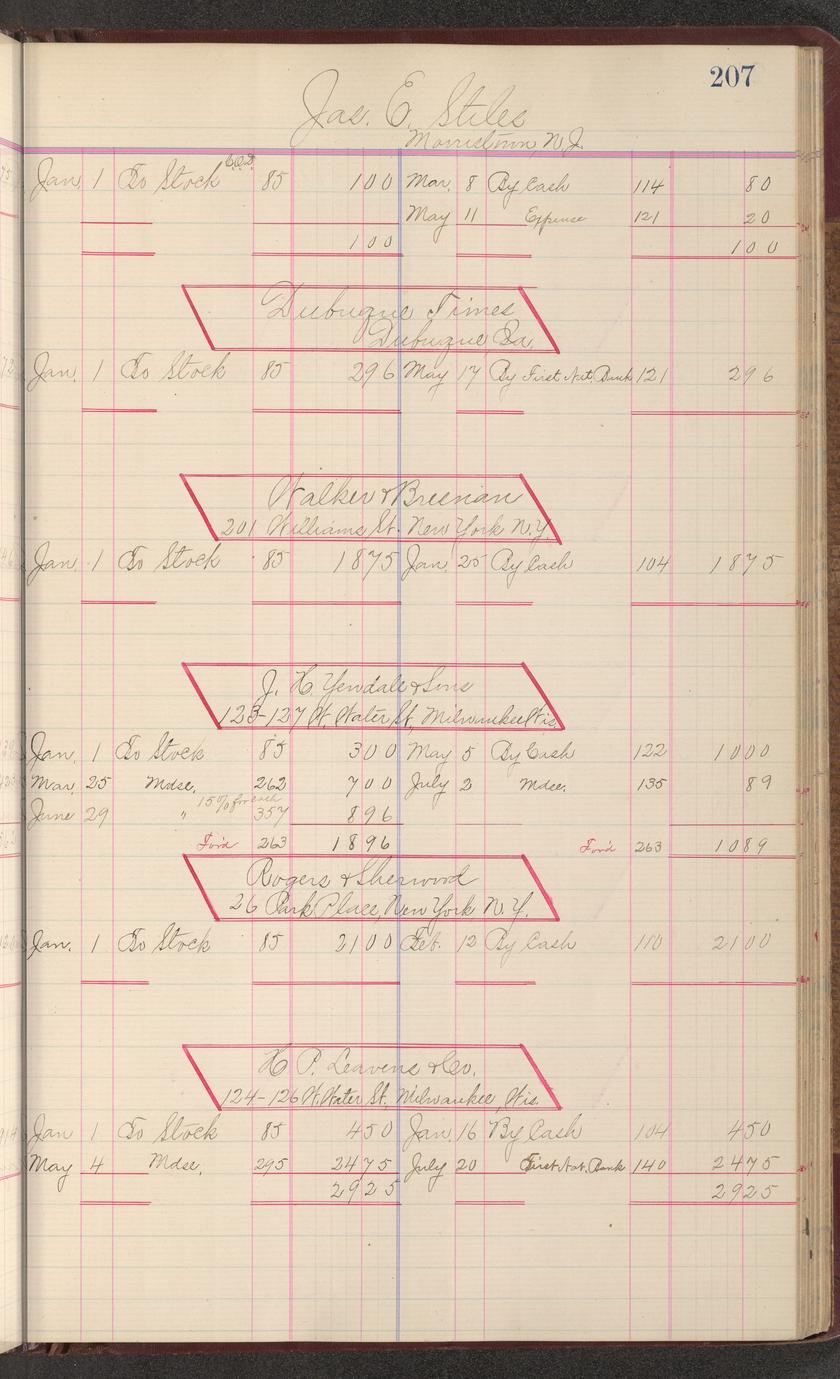 207
Jas. E. Stiles
Morristown, N.J.
C.O.D.
Jan. 1 To Stock 85 100 Mar. 8 By Cash 114 80
May 11 Expense 121 20
100 100
Dubuque Times
Dubuque Ia.
Jan. 1 To Stock 85 296 May 17 By First Nat. Bank 121 296
Walker & Breenan
201 Williams St. New York N.Y.
Jan. 1 To Stock 85 1875 Jan. 25 By Cash 104 1875
J. H. Yewdale & Sons
123-127 W. Water St, Milwaukee Wis.
Jan. 1 To Stock 85 300 May 5 By Cash 122 1000
Mar. 25 Mdse. 262 700 July 2 Mdse. 135 89
15% for cash
June 29 " 357 896
For'd 263 1896 For'd 263 1089
Rogers & Sherwood
26 Park Place, New York N.Y.
Jan. 1 To Stock 85 2100 Feb. 12 By Cash 110 2100
H. P. Leavens & Co.
124-126 W. Water St. Milwaukee, Wis.
Jan 1 To Stock 85 450 Jan. 16 By Cash 104 450
May 4 Mdse, 295 2475 July 20 First Nat. Bank 140 2475
2925 2925